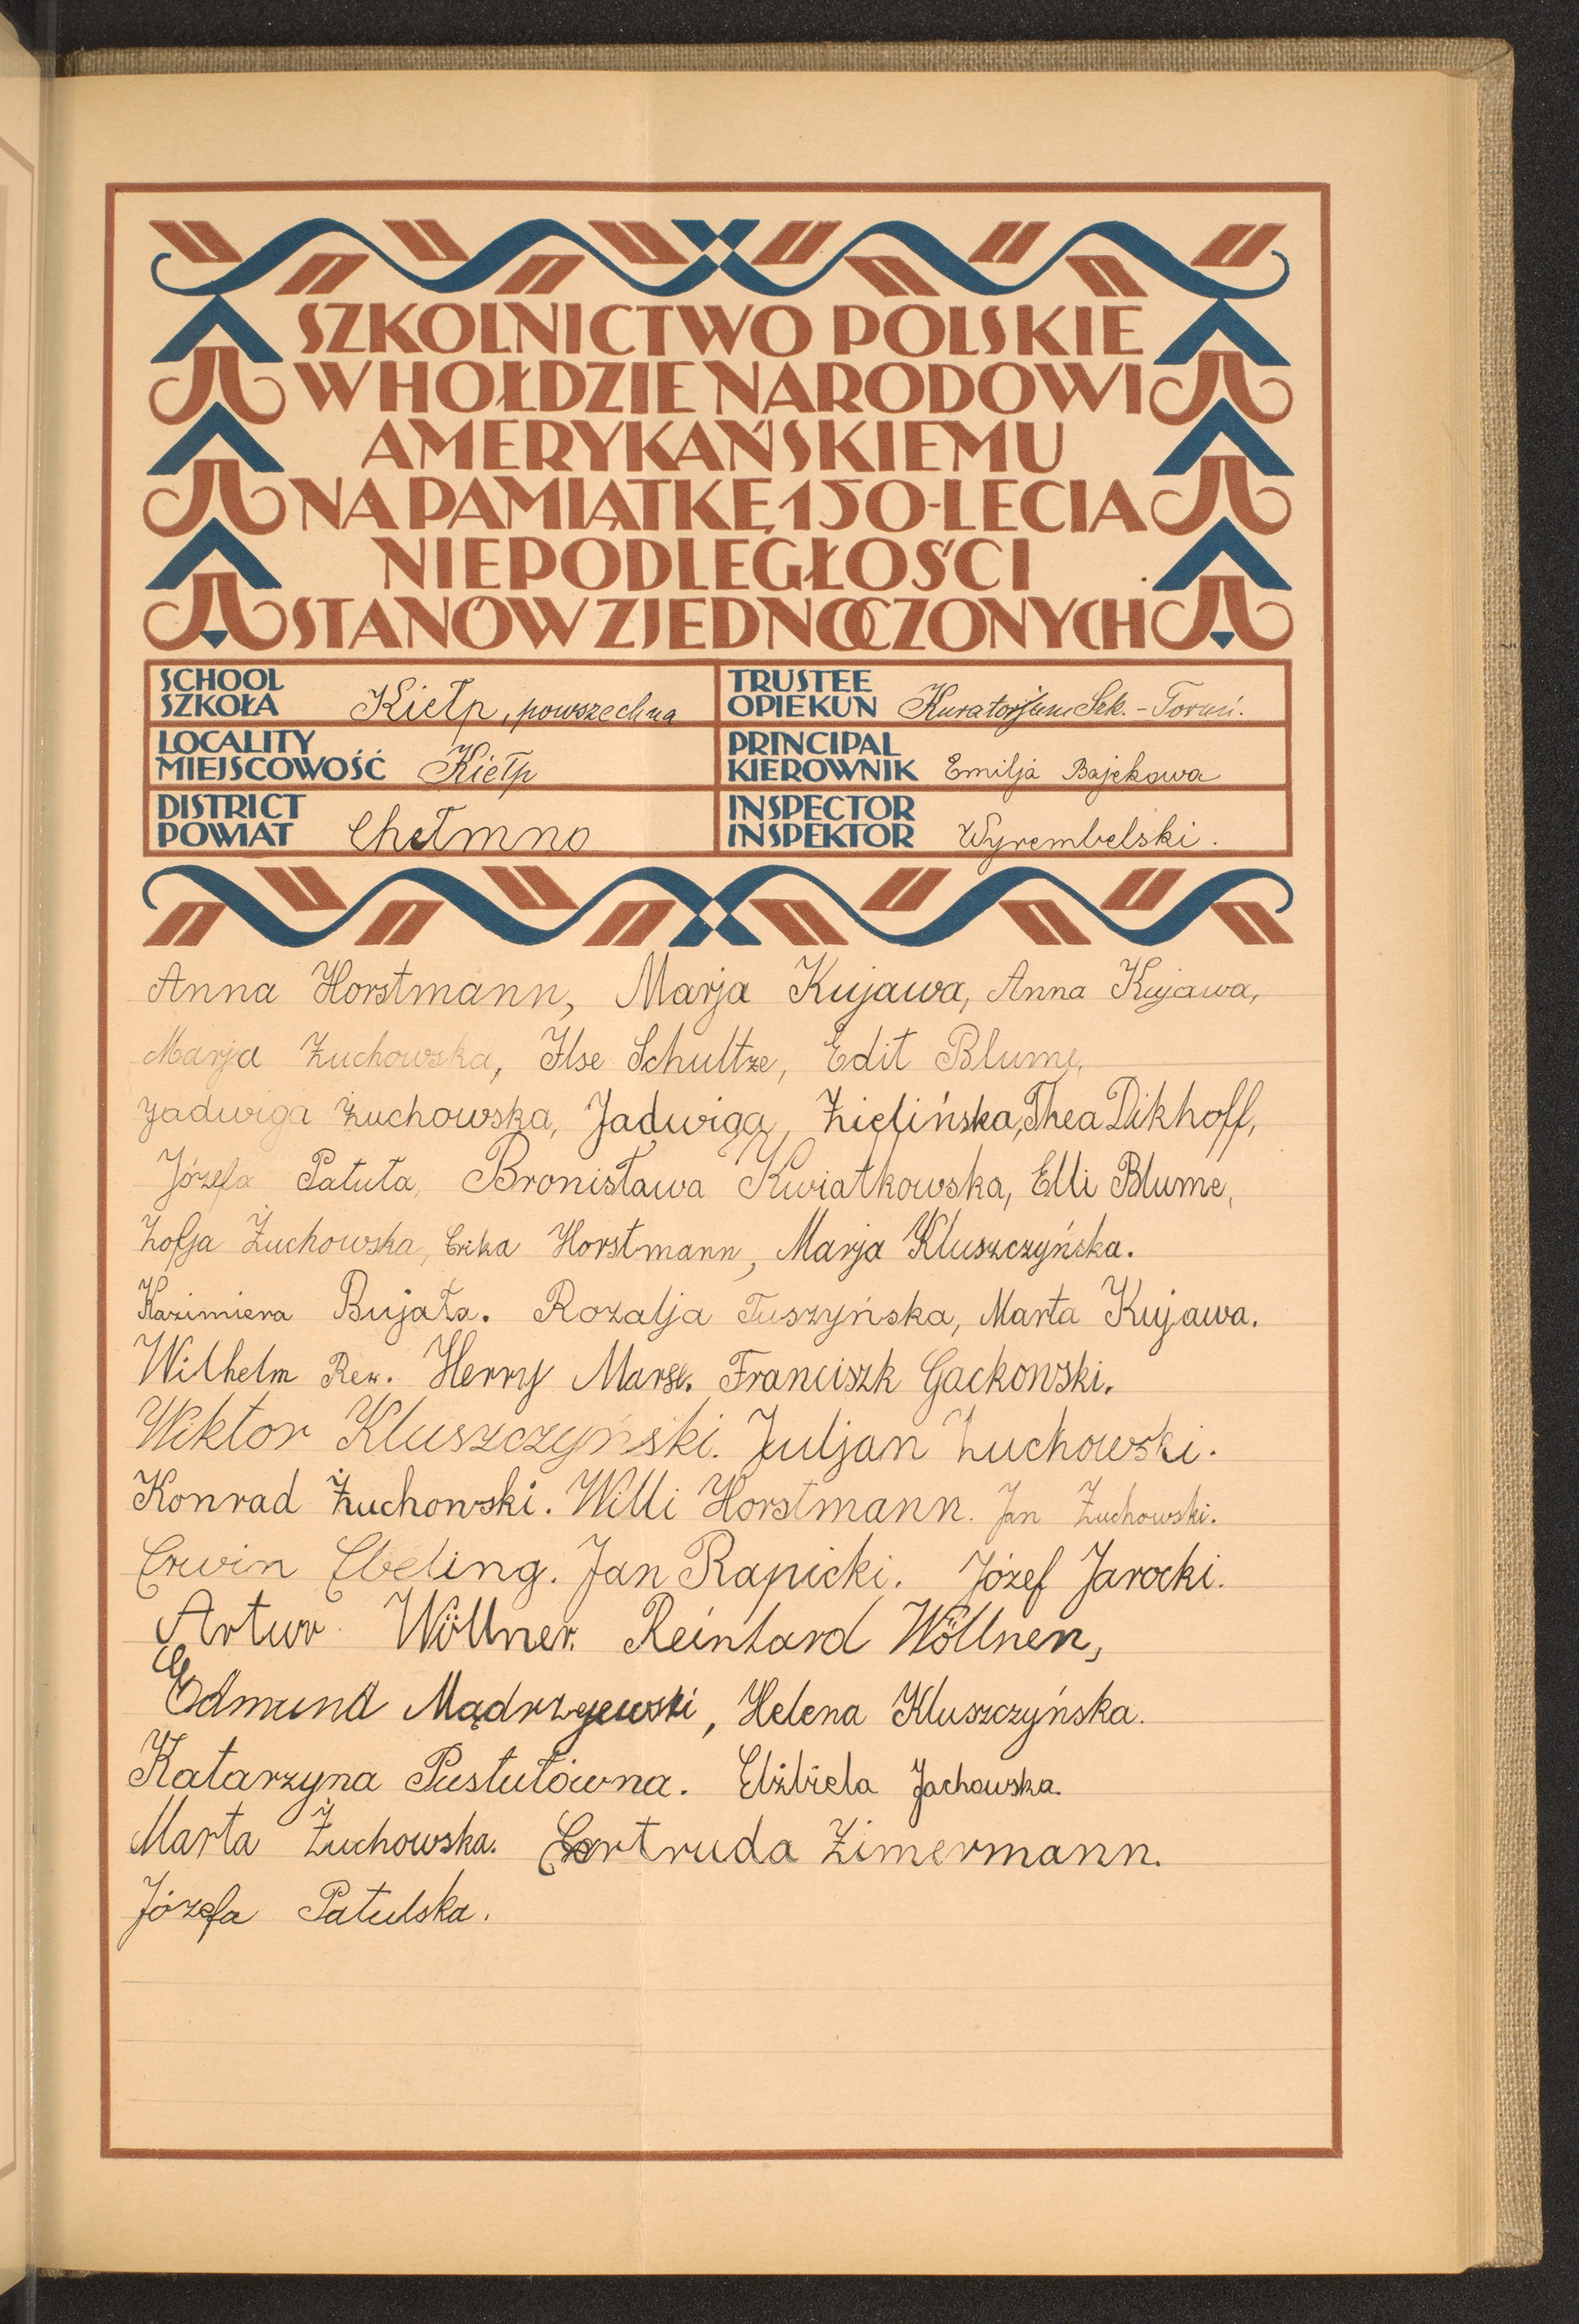 SZKOLNICTWO POLSKIE
W HOŁDZIE NARODOWI
AMERYKAŃSKIEMU
NA PAMIĄTKĘ 150-LECIA
NIEPODLEGŁOŚCI
STANÓW ZJEDNOCZONYCH
SCHOOL
SZKOŁA Kiełp, powszechna
TRUSTEE
OPIEKUN Kuratorjum Szk. - Toruń.
LOCALITY
MIEJSCOWOŚĆ Kiełp
PRINCIPAL
KIEROWNIK Emilja Bajękowa
DISTRICT
POWIAT Chełmno
INSPECTOR
INSPEKTOR Wyrembelski.
Anna Horstmann, Marja Kujawa, Anna Kujawa,
Marja Żuchowska, Ilse Schultze, Edit Blume,
Jadwiga Żuchowska, Jadwiga, Zielińska, Thea Dikhoff,
Józefa Patuła, Bronisława Kwiatkowska, Elli Blume,
Zofja Żuchowska, Erika Horstmann, Marja Kluszczyńska.
Kazimiera Bujała. Rozalja Tuszyńska, Marta Kujawa.
Wilhelm Herry Franciszk Gackowski.
Wiktor Kluszczyński. Juljan Żuchowski.
Konrad Żuchowski. Willi Horstmann. Jan Żuchowski.
Erwin Ebeling. Jan Rapicki. Józef Jarocki.
Artur Wöllner. Reinhard Wöllner,
Edmund Mądrzejewski, Helena Kluszczyńska.
Katarzyna Pustułówna. Elżbieta Jachowska.
Marta Żuchowska. Gertruda Zimermann.
Józefa Patulska.